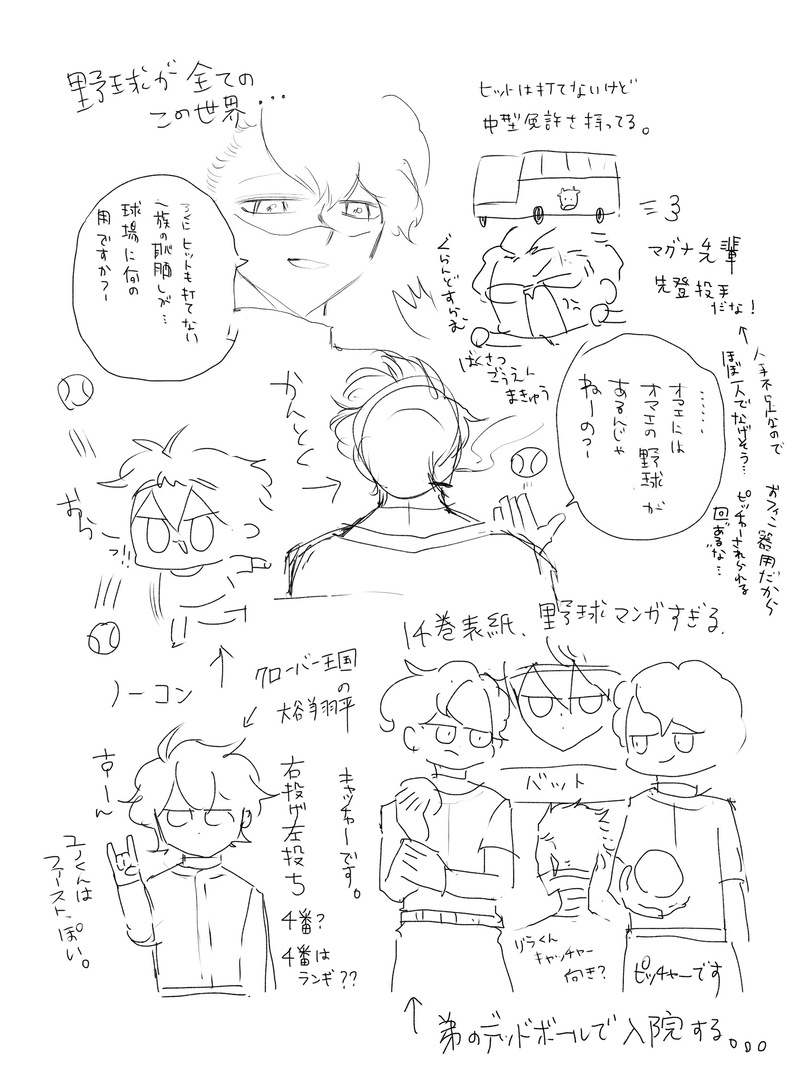 野球が全ての
この世界...
ろくにヒットも打てない
一族の恥晒しが...
球場に何の
用ですか?
ヒットは打てないけど
中型免許を持ってる。
マグナ先輩
先発投手
だな!
↑人手不足なので
ほぼ一人でなげそう...
ぐらんどすらむ
ばくさつ
ごうえん
まきゅう
......
オマエには
オマエの野球が
あるんじゃ
ねーのっ?
器用だから
ピッチャーされられる
回あるな...
かんとく
→
おらーっ!!
ノーコン
14巻表紙、野球マンガすぎる。
クローバー王国
の
大谷翔平
右投げ左投ち
4番?
4番は
ランギ??
すーん
ユノくんは
ファーストっぽい。
キャッチャーです。
バット
りらくん
キャッチャー
向き?
ピッチャーです
↑弟のデッドボールで入院する。。。